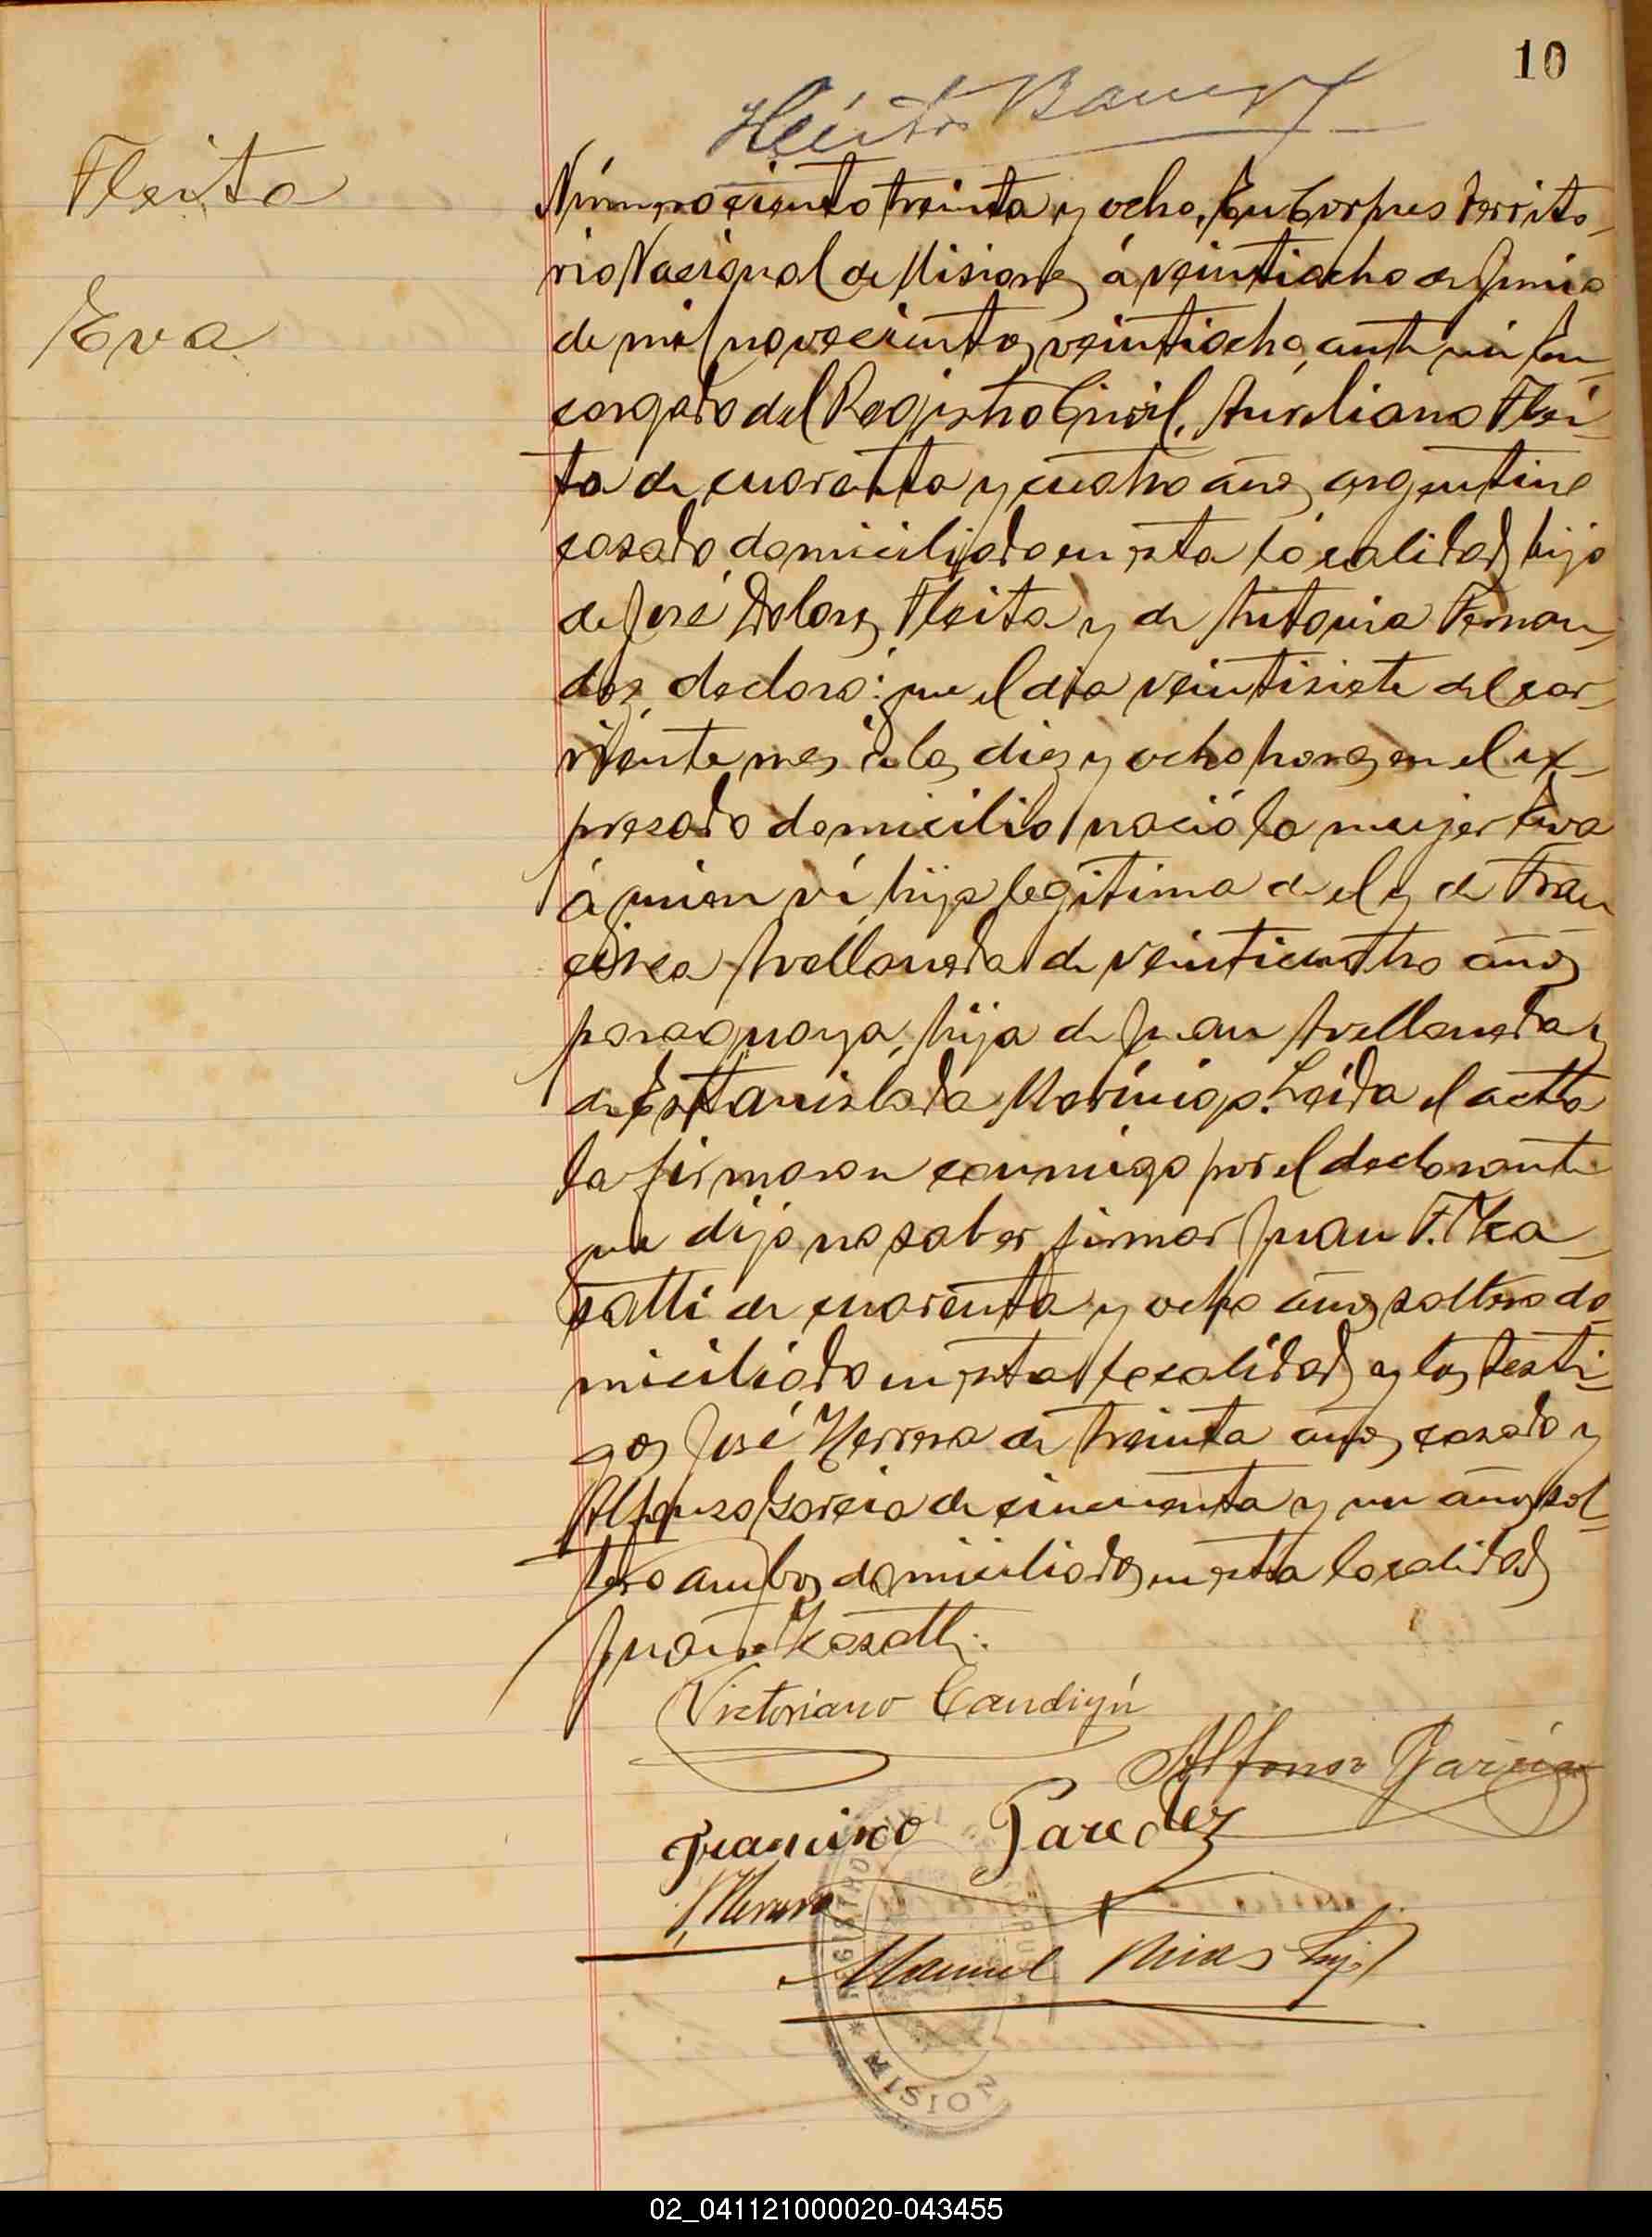 10
Fleita
Eva
Número ciento treinta y ocho. En Corpus Territo-
rio Nacional de Misiones á veintiocho de Junio
de mil novecientos veintiocho, ante mi En-
cargado del Registro Civil, Aureliano Flei-
ta de cuarenta y cuatro años argentino
casado domiciliado en esta localidad hijo
de José Dolores Fleita y de Antonia Fernan-
dez, declaró: que el dia veintisiete del cor-
riente mes á las diez y ocho horas en el ex-
presado domicilio nació la mujer Eva
á quien ví, hija legítima de el y de Fran
cisca Avellaneda de veinticuatro años
paraguaya, hija de Juan Avellaneda y
de Estanislada Meriniga. Leida el acta
la firmaron conmigo por el declarante
que dijo no saber firmar Juan F.
de cuarenta y ocho años soltero do-
miciliado en esta localidad y los testi-
gos José Herrera de treinta años casado y
Alfonso Garcia de cincuenta y un años sol-
tero ambos domiciliados en esta localidad
Juan
Victoriano Candiyú
Alfonso Garcia
Francisco Paredez
J Herrera
Manuel Rivas hijo
REGISTRO
CORPUS
* MISION
02_041121000020-043455